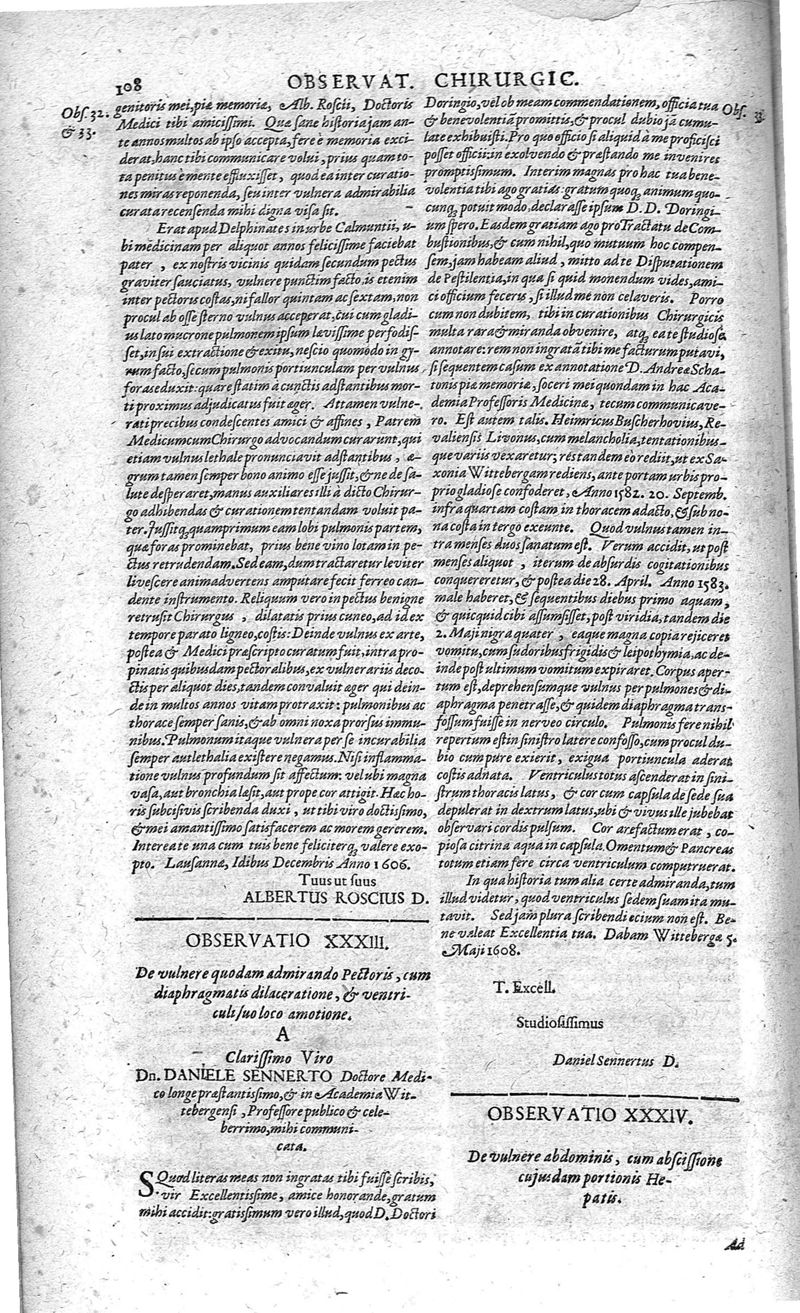 108
OBSERVAT. CHIRURGIC.
Obs. 32.
& 33.
genitoris mei, piæ memoriæ, Alb. Roscii, Doctoris
Medici tibi amicissimi. Quæ sane historia jam an-
te annos multos ab ipso accepta, fere è memoria exci-
derat, hanc tibi communicare volui, prius quam to-
ta penitus è mente effluxisset, quod ea inter curatio-
nes miras reponenda, seu inter vulnera admirabilia
curata recensenda mihi digna visa sit.
Erat apud Delphinates in urbe Calmuntii, u-
bi medicinam per aliquot annos felicissime faciebat
pater, ex nostris vicinis quidam secundum pectus
graviter sauciatus, vulnere punctim facto, is etenim
inter pectoris costas, ni fallor quintam ac sextam, non
procul ab osse sterno vulnus acceperat, cui cum gladi-
us lato mucrone pulmonem ipsum lævissime perfodis-
set, in sui extractione & exitu, nescio quomodo in gy-
rum facto, secum pulmonis portiunculam per vulnus
foras eduxit: quare statim à cunctis adstantibus mor-
ti proximus adjudicatus fuit æger. Attamen vulne-
rati precibus condescentes amici & affines, Patrem
Medicum cum Chirurgo advocandum curarunt, qui
etiam vulnus lethale pronunciavit adstantibus, æ-
grum tamen semper bono animo esse jussit, & ne de sa-
lute desperaret, manus auxiliares illi à dicto Chirur-
go adhibendas & curationem tentandam voluit pa-
ter. Jussitq, quamprimum eam lobi pulmonis partem,
quæ foras prominebat, prius bene vino lotam in pe-
ctus retrudendam. Sed eam, dum tractaretur leviter
livescere animadvertens amputare fecit ferreo can-
dente instrumento. Reliquum vero in pectus benigne
retrusit Chirurgus, dilatatis prius cuneo, ad id ex
tempore parato ligneo, costis: Deinde vulnus ex arte,
postea & Medici præscripto curatum fuit, intra pro-
pinatis quibusdam pectoralibus, ex vulnerariis deco-
ctis per aliquot dies, tandem convaluit æger qui dein-
de in multos annos vitam protraxit: pulmonibus ac
thorace semper sanis, & ab omni noxa prorsus immu-
nibus. Pulmonum itaque vulnera per se incurabilia
semper aut lethalia existere negamus. Nisi inflamma-
tione vulnus profundum sit affectum: vel ubi magna
vasa, aut bronchia læsit, aut prope cor attigit. Hæc ho-
ris subcisivis scribenda duxi, ut tibi viro doctissimo,
& mei amantissimo satisfacerem ac morem gererem.
Interea te una cum tuis bene feliciterq, valere exo-
pto. Lausannæ, Idibus Decembris Anno 1606.
Tuus ut suus
ALBERTUS ROSCIUS D.
OBSERVATIO XXXIII.
De vulnere quodam admirando Pectoris, cum
diaphragmatis dilaceratione, & ventri-
culi suo loco amotione.
A
Clarissimo Viro
Dn. DANIELE SENNERTO Doctore Medi-
co longe præstantissimo, & in Academia Wit-
tebergensi, Professore publico & cele-
berrimo, mihi communi-
cata.
SQuod literas meas non ingratas tibi fuisse scribis,
vir Excellentissime, amice honorande, gratum
mihi accidit: gratissimum vero illud, quod D. Doctori
Obs. 33.
Doringio, vel ob meam commendationem, officia tua
& benevolentiã promittis, & procul dubio jã cumu-
late exhibuisti. Pro quo officio si aliquid à me proficisci
posset officii: in exolvendo & præstando me invenires
promptissimum. Interim magnas pro hac tua bene-
volentia tibi ago gratias: gratum quoq, animum quo-
cunq, potuit modo, declarasse ipsum D. D. Doringi-
um spero. Easdem gratiam ago pro Tractatu de Com-
bustionibus, & cum nihil, quo mutuum hoc compen-
sem, jam habeam aliud, mitto ad te Disputationem
de Pestilentia, in qua si quid monendum vides, ami-
ci officium feceris, si illud me non celaveris. Porro
cum non dubitem, tibi in curationibus Chirurgicis
multa rara & miranda obvenire, atq, ea te studiose
annotare: rem non ingratã tibi me facturum putavi,
si sequentem casum ex annotatione D. Andreæ Scha-
tonis piæ memoriæ, soceri mei quondam in hac Aca-
demia Professoris Medicinæ, tecum communicave-
ro. Est autem talis. Heimricus Buscherhovius, Re-
valiensis Livonus, cum melancholia, tentationibus-
que variis vexaretur, res tandem eo rediit, ut ex Sa-
xonia Wittebergam rediens, ante portam urbis pro-
prio gladio se confoderet, Anno 1582. 20. Septemb.
infra quartam costam in thoracem adacto, & sub no-
na costa in tergo exeunte. Quod vulnus tamen in-
tra menses duos sanatum est. Verum accidit, ut post
menses aliquot, iterum de absurdis cogitationibus
conquereretur, & postea die 28. April. Anno 1583.
male haberet, & sequentibus diebus primo aquam,
& quicquid cibi assumsisset, post viridia, tandem die
2. Maji nigra quater, eaque magna copia rejiceret
vomitu, cum sudoribus frigidis & leipothymia, ac de-
inde post ultimum vomitum expiraret. Corpus aper-
tum est, deprehensumque vulnus per pulmones & di-
aphragma penetrasse, & quidem diaphragma trans-
fossum fuisse in nerveo circulo. Pulmonis fere nihil
repertum est in sinistro latere confosso, cum procul du-
bio cum pure exierit, exigua portiuncula aderat
costis adnata. Ventriculus totus ascenderat in sini-
strum thoracis latus, & cor cum capsula de sede sua
depulerat in dextrum latus, ubi & vivus ille jubebat
observari cordis pulsum. Cor arefactum erat, co-
piosa citrina aqua in capsula. Omentum & Pancreas
totum etiam fere circa ventriculum computruerat.
In qua historia tum alia certe admiranda, tum
illud videtur, quod ventriculus sedem suam ita mu-
tavit. Sed jam plura scribendi ocium non est. Be-
ne valeat Excellentia tua. Dabam Wittebergæ 5.
Maji 1608.
T. Excell.
Studiosissimus
Daniel Sennertus D.
OBSERVATIO XXXIV.
De vulnere abdominis, cum abscissione
cujusdam portionis He-
patis.
Ad